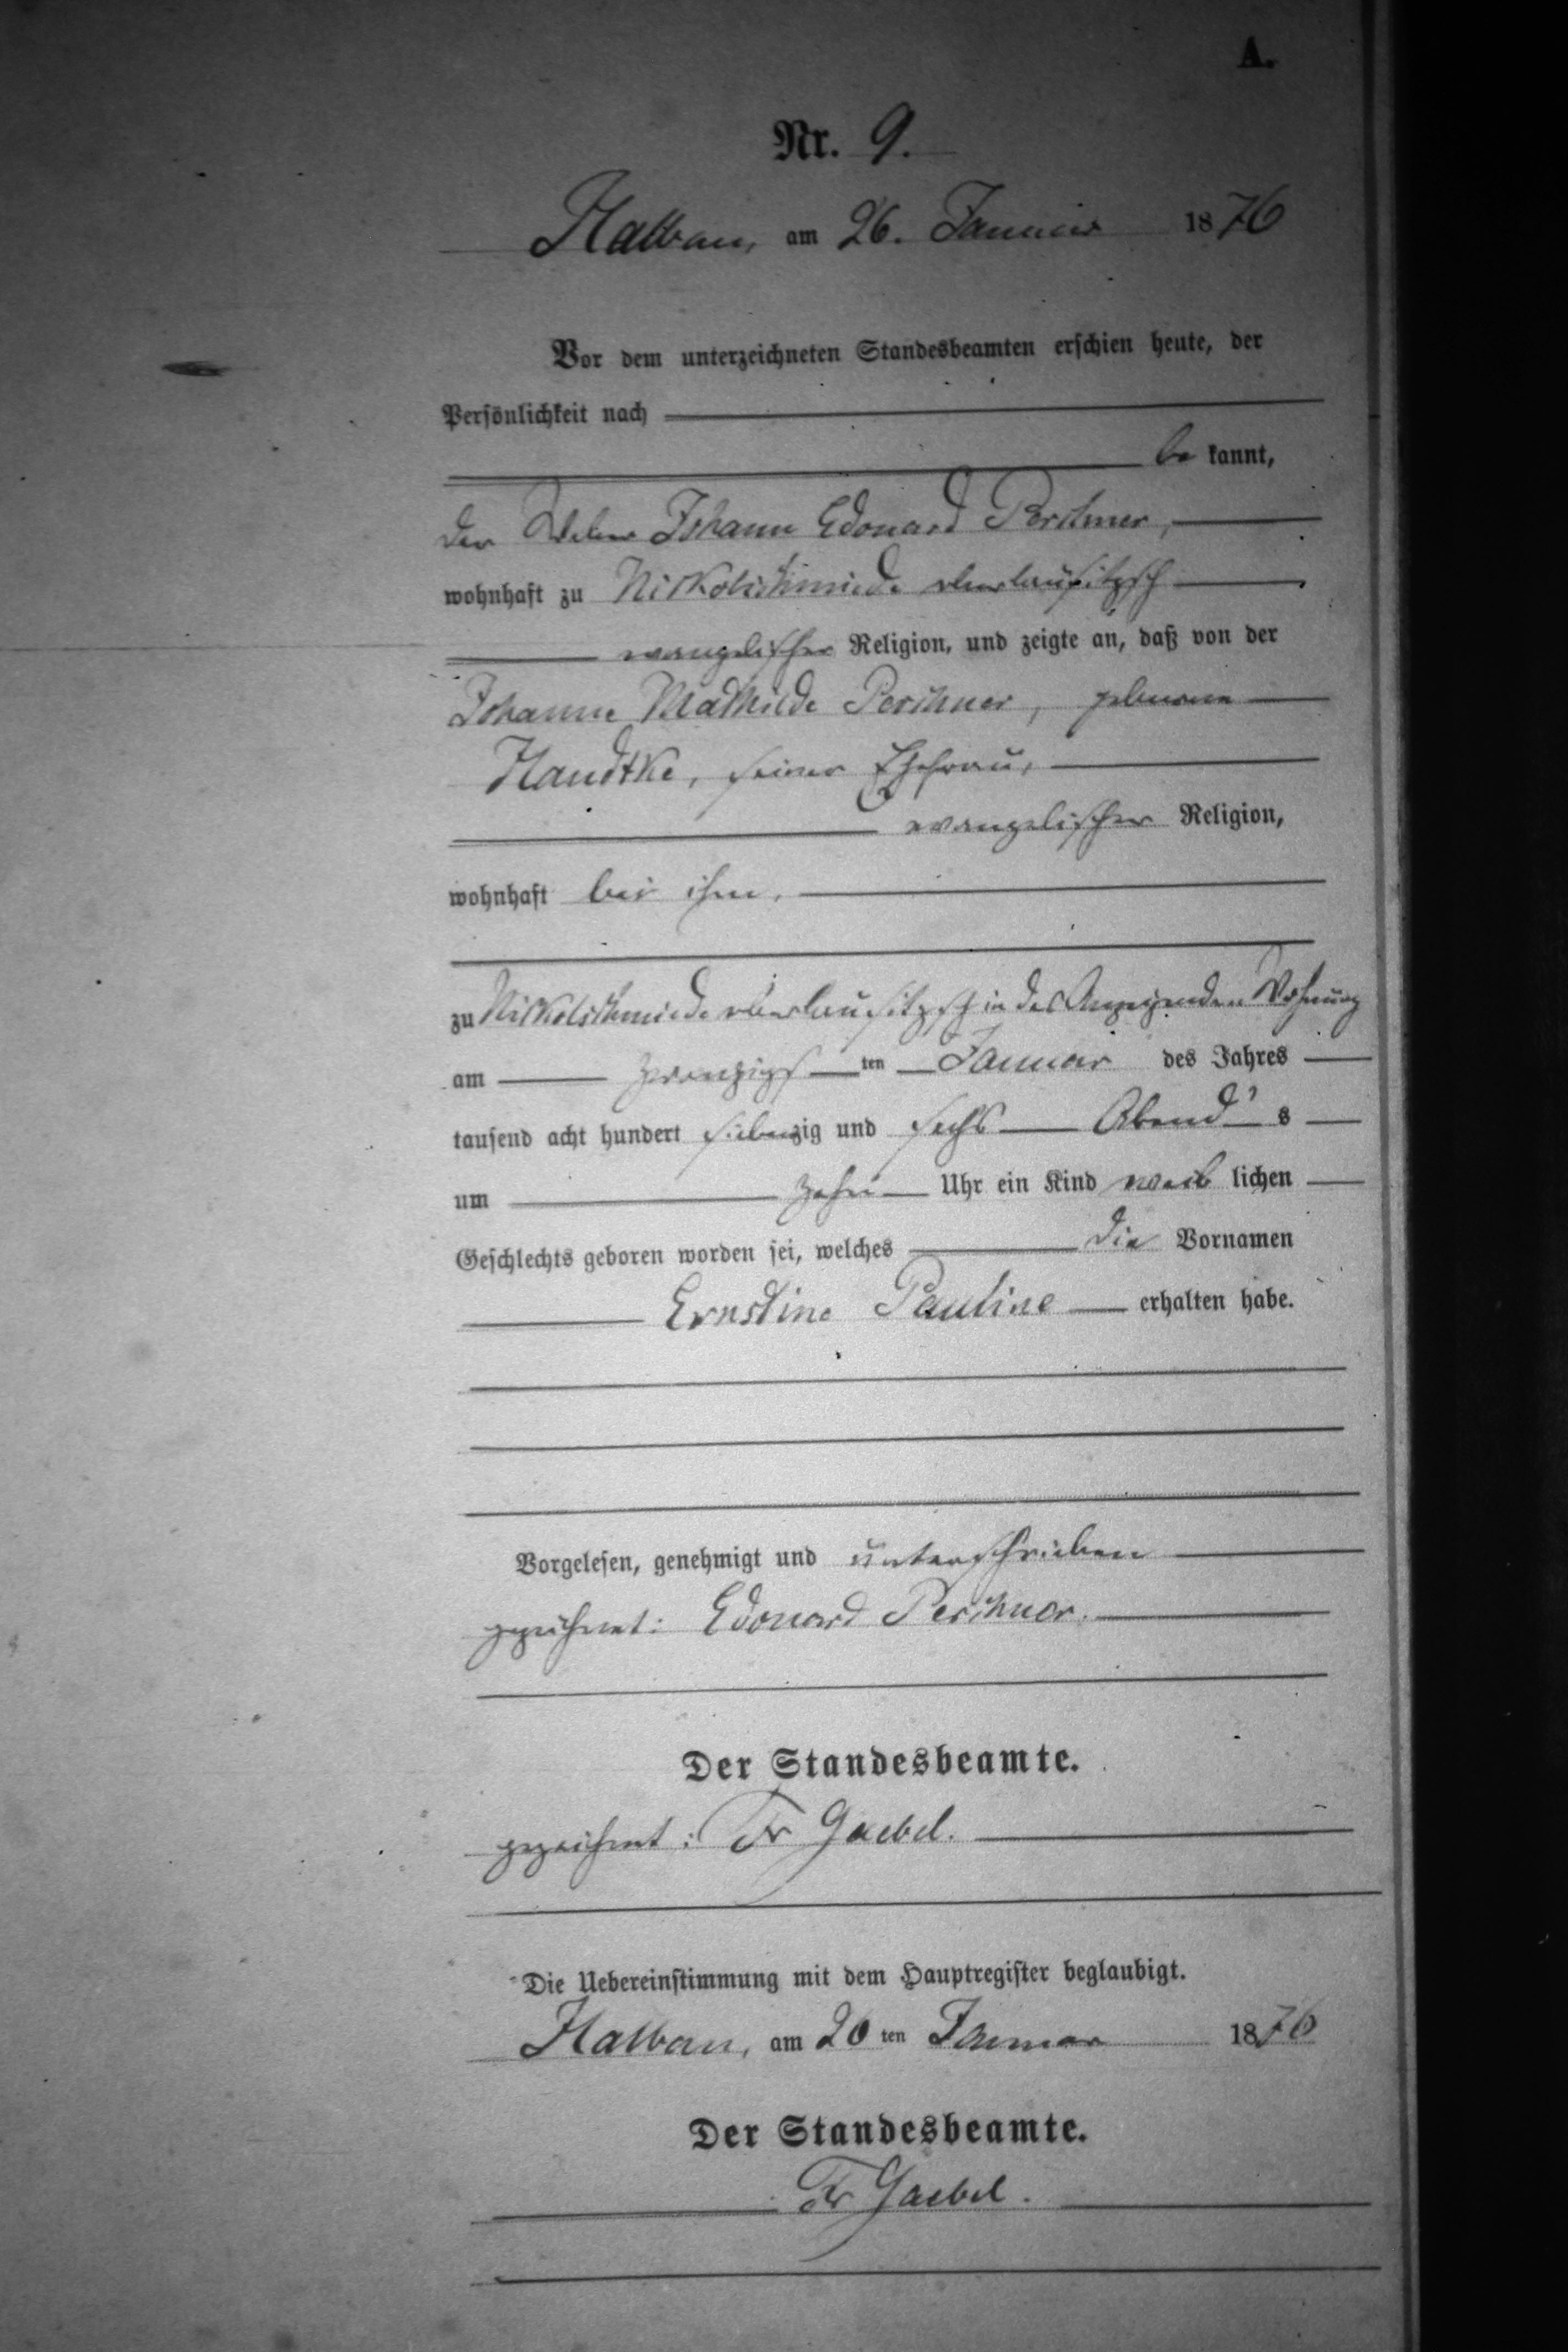 A.
Nr. 9.
Halbau, am 26. Januar 1876
Vor dem unterzeichneten Standesbeamten erschien heute, der
Persönlichkeit nach
be kannt,
der Weber Johann Edouard Perschner,
wohnhaft zu Nikolschmiede oberlausitzsch
evangelischer Religion, und zeigte an, daß von der
Johanne Mathilde Perschner, geborene
Handtke, seiner Ehefrau,
evangelischer Religion,
wohnhaft bei ihm,
zu Nikolschmiede oberlausitzsch in des Anzeigenden Wohnung
am zwanzigs ten Januar des Jahres
tausend acht hundert siebenzig und sechs Abend's
um zehn Uhr ein Kind weib lichen
Geschlechts geboren worden sei, welches die Vornamen
Ernstine Pauline erhalten habe.
Vorgelesen, genehmigt und unterschrieben
gezeichnet: Edouard Perschner.
Der Standesbeamte.
gezeichnet: Fr Gaebel.
Die Uebereinstimmung mit dem Hauptregister beglaubigt.
Halbau, am 26 ten Januar 1876
Der Standesbeamte.
Fr Gaebel.